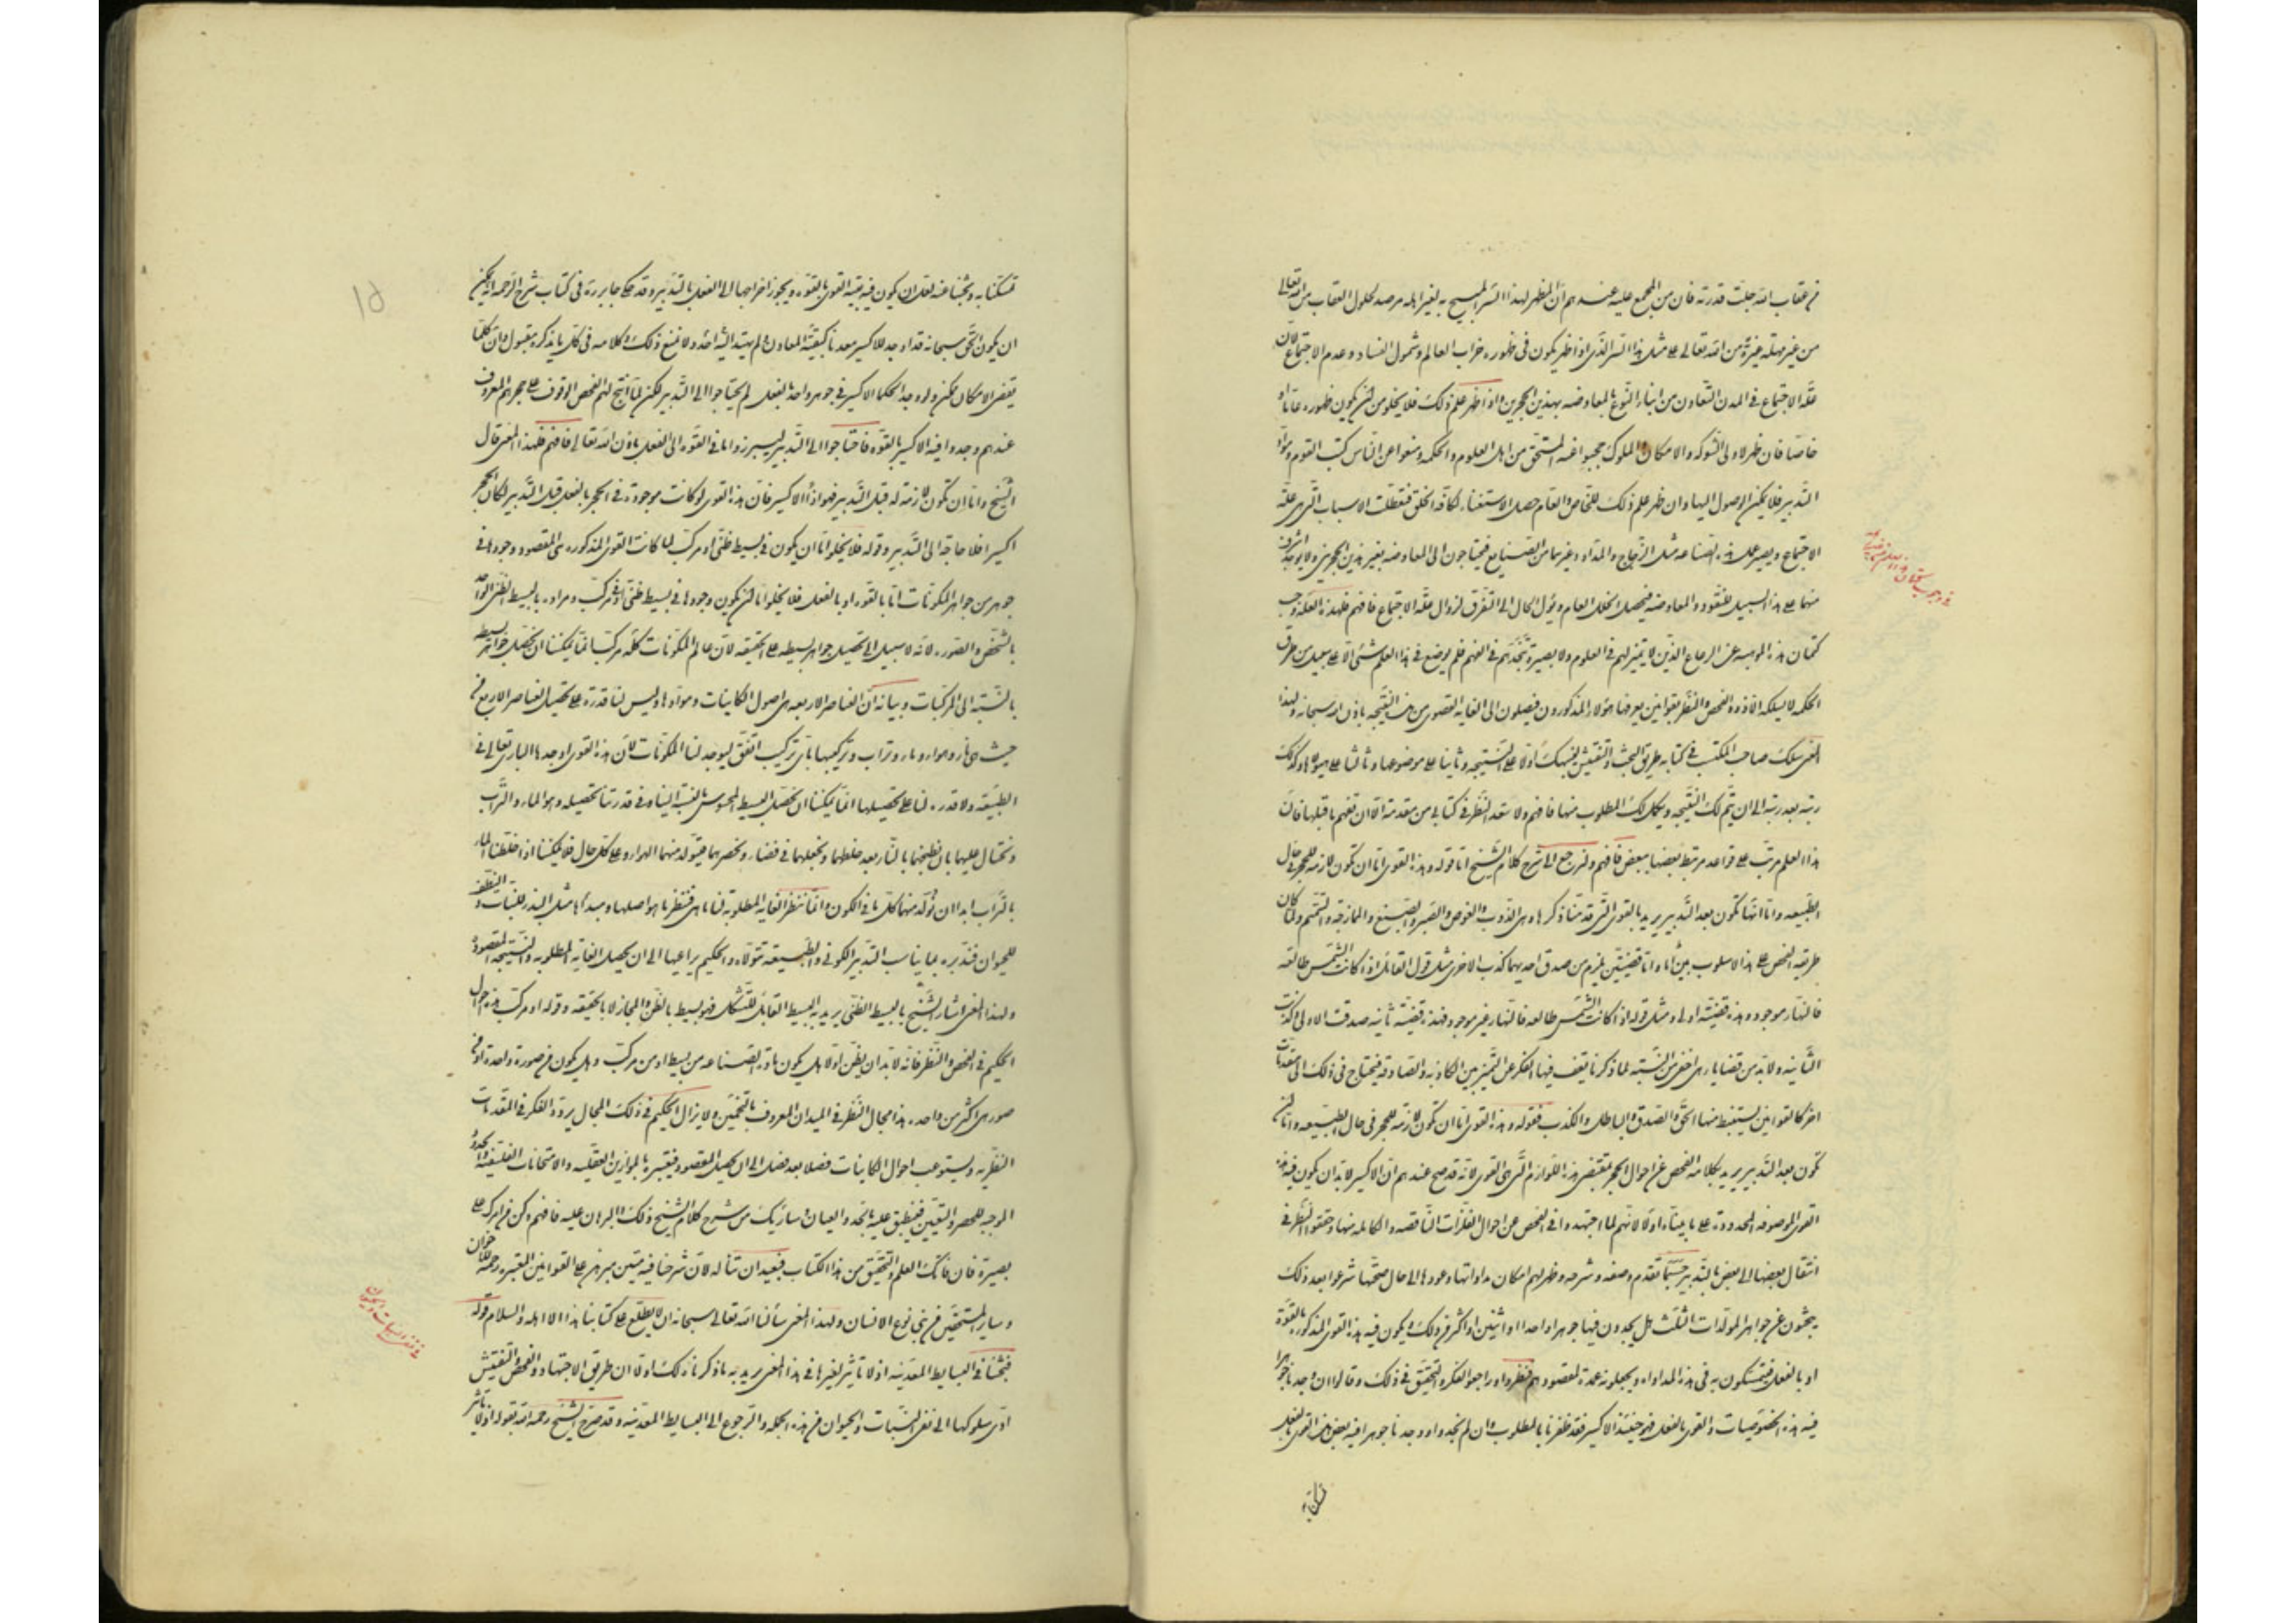 من عقاب الله جلت قدرته فان من المجمع عليه عندهم ان المظهر لهذا السر المبيح به لغير اهله مرصد لحلول العقاب من الله تعالى
من غير مهلة غيرة من الله تعالى على مثل هذا السر الذى اذا ظهر يكون فى ظهوره خراب العالم وشمول الفساد وعدم الاجتماع لان
علة الاجتماع فى المدن التعاون من ابناء النوع بالمعاوضه بهذين الحجرين واذا ظهر علم ذلك فلا يخلو من ان يكون ظهوره عاما او
خاصا فان ظهر لاولى الشوكه والامكان والملوك حجبوا عنه المستحق من اهل العلوم والحكمه ومنعوا عن الناس كتب القوم ومواد
التدبير فلا يمكن الوصول اليها وان ظهر علم ذلك للخاص والعام حصل الاستغناء لكافه الخلق فتعطلت الاسباب التى هى علة
الاجتماع ويصير عمل هذه الصناعه مثل الزجاج والمداد وغيرهما من الصنايع فيحتاجون الى المعاوضه بغير هذين الحجرين ولا يوجد اشرف
منهما على هذا السبيل للنقود والمعاوضه فيحصل الخلل العام ويؤل الحال الى التفرق لزوال علة الاجتماع فافهم فلهذه العله وجب
كتمان هذه الموهبه عن الرعاع الذين لا تميز لهم فى العلوم ولا بصيرة تنجدهم فى الفهم فلم يوضع فى هذا العلم شئ الا على سبيل من طرق
الحكمه لا يسلكه الا ذووا الفحص والنظر بقوانين يعرفها هؤلاء المذكورون فيصلون الى الغايه القصوى من هذه النتيجه باذن الله سبحانه ولهذا
المعنى سلك صاحب المكتسب فى كتابه طريق البحث والتفتيش لينبهك اولا على النتيجه وثانيا على موضوعها وثالثا على هيولاها وكذلك
رتبه بعد رتبه الى ان يتم لك النتيجه ويكمل لك المطلوب منها فافهم ولا تبعد النظر فى كتابى من مقدمة الا ان تفهم ما قبلها فان
هذا العلم مرتب على قواعد مرتبط بعضها ببعض فافهم ولنرجع الى شرح كلام الشيخ اما قوله وهذه القوى اما ان تكون لازمه للحجر فى حال
الطبيعه واما انها تكون بعد التدبير يريد بالقوى التى قدمنا ذكرها وهى الذوب والغوص والصبر والصبغ والممازجه والتتميم ولما كان
طريقه الفحص على هذا الاسلوب بين اما واما قضيتين يلزم من صدق احديهما كذب الاخرى مثل قول القائل اذا كانت الشمس طالعه
فالنهار موجود وهذه قضيته اولى ومثل قوله اذا كانت الشمس طالعه فالنهار غير موجود فهذه قضيته ثانيه صدقت الاولى وكذبت
الثانيه ولا بد من قضايا هى اخفى من النسبته لما ذكرنا يقف فيها الفكر عن التميز بين الكاذبه والصادقه فيحتاج فى ذلك الى مقدمات
اخر كالقوانين ليستنبط منها الحق والصدق والباطل والكذب فقوله وهذه القوى اما ان تكون لازمة للحجر فى حال الطبيعه واما ان
تكون بعد التدبير يريد بكلامه الفحص عن احوال الحجر بمقتضى هذه اللوازم التى هى القوى لانه قد صح عندهم ان الاكسير لا بد ان يكون فيه هذه
القوى الموصوفه المحدوده على ما بيناه اولا لانهم لما اجتهدوا فى الفحص عن احوال الفلزات الناقصه والكامله منها وحققوا النظر فى
انتقال بعضها الى بعض بالتدبير حسبما تقدم وصفه وشرحه وظهر لهم امكان مداواتها وعودها الى حال صحتها شرعوا بعد ذلك
يبحثون عن جواهر المولدات الثلث هل يجدون فيها جوهرا واحدا او اثنين او اكثر من ذلك ويكون فيه هذه القوى المذكوره بالقوة
او بالفعل فيتمسكون به فى هذه المداواه ويجعلونه عمدة لمقصودهم فنظروا وراجعوا الفكر والتحقيق فى ذلك وقالوا ان وجدنا جوهرا
فيه هذه الخصوصيات والقوى بالفعل فهو حينئذ الاكسير فقد ظفرنا بالمطلوب وان لم نجد ووجدنا جوهرا فيه بعض هذه القوى بالفعل
تمسكنا به
تمسكنا به وبحثنا عنه لعل ان يكون فيه بقيه القوى بالقوه ويجوز اخراجها الى الفعل بالتدبير وقد حكى جابر ره فى كتاب شرح الرحمه انه يمكن
ان يكون الحق سبحانه قد اوجد للاكسير معدنا كبقيه المعادن ولم يهتد اليه احد ولا نمنع ذلك وكلامه فى كل ما يذكره مقبول وان كلما
يقتضى الامكان ممكن ولو وجد الحكماء الاكسير فى جوهر واحد بالفعل لم يحتاجوا الى التدبير لكن لما انتج لهم الفحص الوقوف على حجرهم المعروف
عندهم وجدوا فيه الاكسير بالقوه فاحتاجوا الى التدبير ليبرزوا ما فى القوه الى الفعل باذن الله تعالى فافهم فلهذا المعنى قال
الشيخ واما ان تكون لازمة له قبل التدبير فهو اذا الاكسير فان هذه القوى لو كانت موجوده فى الحجر بالفعل قبل التدبير لكان الحجر
اكسيرا فلا حاجة الى التدبير وقوله فلا يخلوا اما ان يكون فى بسيط ظنى او مركب لما كانت القوى المذكوره هى المقصود وجودها فى
جوهر من جواهر المكونات اما بالقوه او بالفعل فلا يخلوا اما ان يكون وجودها فى بسيط ظنى او فى مركب ومراده بالبسيط الظنى الواحد
بالشخص والصوره لانه لا سبيل الى تحصيل جواهر بسيطه على الحقيقه لان عالم المكونات كله مركب انما يمكننا ان نحصل جواهر بسيطه
بالنسبته الى المركبات وبيانه ان العناصر الاربعه هى اصول الكاينات وموادها وليس لنا قدرة على تحصيل العناصر الاربع من
حيث هى نار وهواء وماء وتراب وتركيبها باى تركيب اتفق ليوجد لنا المكونات لان هذه القوى اوجدها البارى تعالى فى
الطبيعه ولا قدره لنا على تحصيلها انما يمكننا ان نحصل البسيط المحسوس بالنسبته الينا وفى قدرتنا تحصيله وهو الماء والتراب
ونحتال عليهما بان نطبخهما بالنار بعد خلطهما ونجعلهما فى فضاء ونحصرهما فيتولد منهما الهواء وعلى كل حال فلا يمكننا اذا خلطنا الماء
بالتراب ابدا ان نولد منهما كل ما فى الكون وانما ننظر الغايه المطلوبه لنا ما هى فننظر ما هو اصلها ومبداها مثل البذر للنبات والنطفه
للحيوان فندبره بما يناسب التدبير الكونى والطبيعه تتولاه والحكيم يراعيها الى ان يحصل الغايه المطلوبه والنتيجه المقصوده
ولهذا المعنى اشار الشيخ بالبسيط الظنى يريد به البسيط القابل للتشكل فهو بسيط بالظن والمجاز لا بالحقيقه وقوله او مركب هذه احوال
الحكيم فى الفحص والنظر فانه لا بد ان يظن اولا هل يكون مادة الصناعه من بسيط او من مركب وهل يكون من صورة واحدة او من
صور هى اكثر من واحد هذا مجال النظر فى الميدان المعروف بالتخمين ولا يزال الحكيم فى ذلك المجال يردد الفكر فى المقدمات
النظريه ويستوعب احوال الكاينات فصلا بعد فصل الى ان يحصل المقصود فيقيسه بالموازين العقليه والامتحانات الفلسفيه والحدود
الموجبه للحصر واليقين فينطبق عليه بالحد والعيان وساريك من شرح كلام الشيخ ذلك والبرهان عليه فافهم وكن من امرك على
بصيرة فان فاتك العلم والتحقيق من هذا الكتاب فبعيد ان تناله لان شرحنا فيه متين مبرهن على القوانين المعتبره رحمة للاخوان
وساير المستحقين من بنى نوع الانسان ولهذا المعنى سألنا الله تعالى سبحانه ان لا يطلع على كتابنا هذا الا اهله والسلام قوله
فبحثنا فى البسايط المعدنيه اذ لا تاثير لغيرها فى هذا المعنى يريد به ما ذكرناه لك اولا ان طريق الاجتهاد والفحص والتفتيش
ادى سلوكها الى نفى النبات والحيوان من هذه الجمله والرجوع الى البسايط المعدنيه وقد صرح الشيخ رحمه الله بقوله اذ لا تاثير